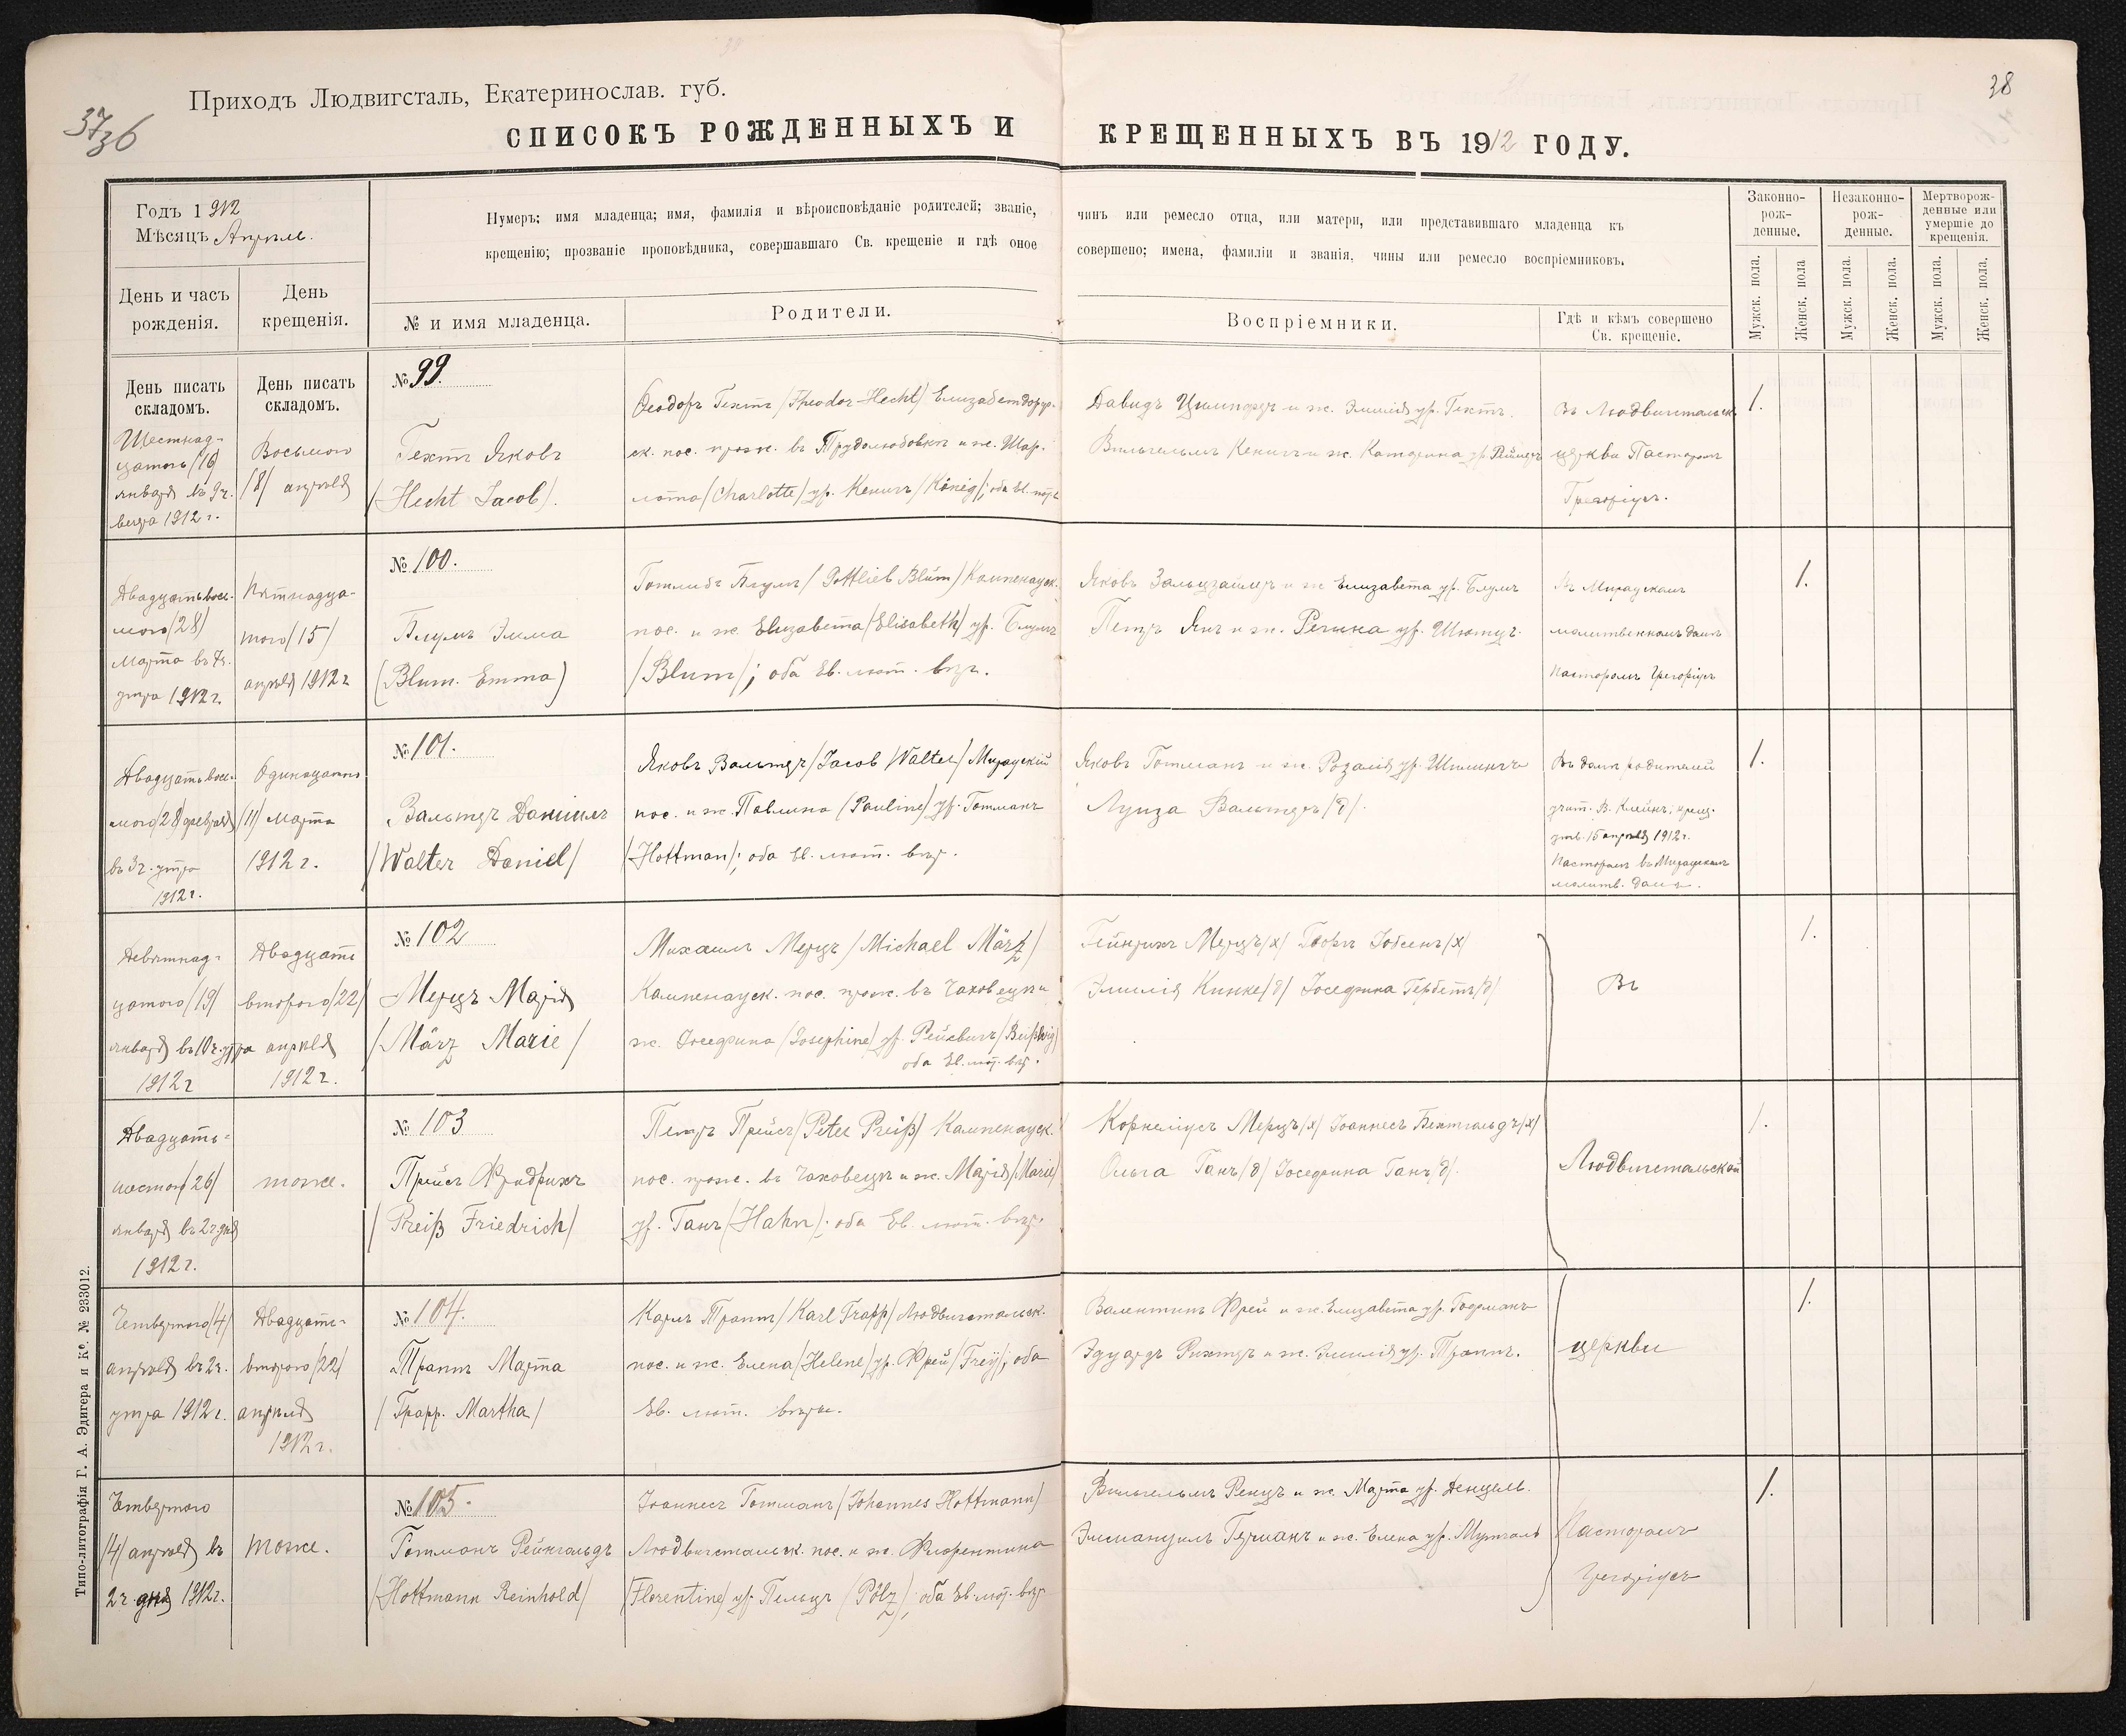 38
Приходъ Людвигсталь, Екатеринослав. губ.
37
36
СПИСОКЪ РОЖДЕННЫХЪ И КРЕЩЕННЫХЪ ВЪ 1912 ГОДУ.
Годъ 1912
Мѣсяцъ Апрѣль.
День и часъ рожденія.
День крещенія.
Нумеръ; имя младенца; имя, фамилія и вѣроисповѣданіе родителей; званіе, чинъ или ремесло отца, или матери, или представившаго младенца къ
крещенію; прозваніе проповѣдника, совершавшаго Св. крещеніе и гдѣ оное совершено; имена, фамиліи и званія, чины или ремесло воспріемниковъ.
№ и имя младенца.
Родители.
Воспріемники.
Гдѣ и кѣмъ совершено
Св. крещеніе.
Законно-
рож-
денные.
Незаконно-
рож-
денные.
Мертворож-
денные или
умершіе до
крещенія.
Мужск. пола.
Женск. пола
Мужск. пола.
Женск. пола.
Мужск. пола.
Женск. пола.
День писать
складомъ.
День писать
складомъ.
Шестнад-
цатаго /16/
января въ 9 ч.
вечера 1912 г.
Восьмого
/8/ апрѣля
№ 99.
Гехтъ Яковъ
/Hecht Jacob/.
Ѳеодоръ Гехтъ /Theodor Hecht/ Елизабетдорф-
ск. пос. прож. въ Трудолюбовкѣ и ж. Шар-
лотта /Charlotte/ ур. Кенигъ /König/; оба Ев. лют.
Давидъ Цимперъ и ж. Эмилія ур. Гехтъ.
Вильгельмъ Кенигъ и ж. Катерина ур.
Въ Людвигстальск.
церкви Пасторомъ
Грегоріусъ.
1.
Двадцать вось-
мого /28/
марта въ 7 ч.
утра 1912 г.
Пятнадца-
того /15/
апрѣля 1912 г.
№ 100.
Блумъ Эмма
(Blum. Emma)
Готлибъ Блумъ /Gottlieb Blüm/ Кампенауск.
пос. и ж. Елизавета /Elisabeth/ ур. Блумъ
/Blum/; оба Ев. лют. вѣр.
Яковъ Зальцзайлеръ и ж Елизавета ур. Блумъ
Петръ Янъ и ж. Регина ур. Шютцъ.
Въ Мирауском
молитвенномъ домѣ
Пасторомъ Грегоріусъ
1.
Двадцать вось-
мого /28/ февраля
въ 3 ч. утра
1912 г.
Одинадцато
/11/ марта
1912 г.
№ 101.
Вальтеръ Даніилъ
/Walter Daniel/
Яковъ Вальтеръ /Jacob Walter/ Мирауский
пос. и ж. Павлина /Pauline/ ур. Готманъ
/Hottman/; оба Ев. лют. вѣр.
Яковъ Готманъ и ж. Розалія ур. Шилингъ
Луиза Вальтеръ /д/.
Въ домѣ родителей
учит. В. Клейнъ; крещ.
утв. 15 апрѣля 1912 г.
Пасторомъ въ Мирауском
молитв. домѣ.
1.
Девятнад-
цатого /19/
января въ 10 ч. утра
1912 г
Двадцать
второго /22/
апрѣля
1912 г.
№ 102
Мерцъ Марія
/März Marie/
Михаилъ Мерцъ /Michael März/
Кампенауск. пос. прож. въ Чаховецкѣ и
ж. Іосефина /Josephine/ ур.
оба Ев. лют. вѣр.
Гейнрихъ Мерцъ /х/ Георгъ /х/
Эмилія Кинке /д/ Іосефина Гербетъ /д/
Въ
1.
Двадцать-
шестого /26/
января въ 2 ч. дня
1912 г.
тоже.
№ 103
Прейсъ Фридрихъ
/Preiß Friedrich/
Петръ Прейсъ /Peter Preiß/ Кампенауск.
пос. прож. въ Чаховецкѣ и ж. Марія /Marie/
ур. Ганъ /Hahn/; оба Ев. лют. вѣр.
Корнеліусъ Мерцъ /х/ Іоаннесъ Бехтгольдъ /х/
Ольга Ганъ /д/ Іосефина Ганъ /д/.
Людвигстальской
1.
Четвертаго /4/
апрѣля въ 2 ч.
утра 1912 г.
Двадцать-
второго /22/
апрѣля
1912 г.
№ 104.
Траппъ Марта
/Трapp. Martha/
Карлъ Траппъ /Karl Trapp/ Людвигстальск.
пос. и ж. Елена /Helene/ ур. Фрей /Freÿ/; оба
Ев. лют. вѣры.
Валентинъ Фрей и ж. Елизавета ур. Годеманъ
Эдуардъ Рихтеръ и ж. Эмилія ур. Траппъ.
церкви
1.
Четвертого
/4/ апрѣля въ
2 ч дня 1912 г.
тоже.
№ 105.
Готманъ Рейнгольдъ
/Hottmann Reinhold/
Іоаннесъ Готманъ /Johannes Hottmann/
Людвигстальск. пос. и ж. Флорентина
/Florentine/ ур. Пельцъ (Pölz); оба Ев. лют. вѣр
Вильгельмъ Ренцъ и ж. Марта ур. Денцель.
Эммануилъ Германъ и ж. Елена ур. Мутшалъ
Пасторомъ
Грегоріусъ
1.
Типо-литографія Г. А. Эдигера и Ко. № 233012.